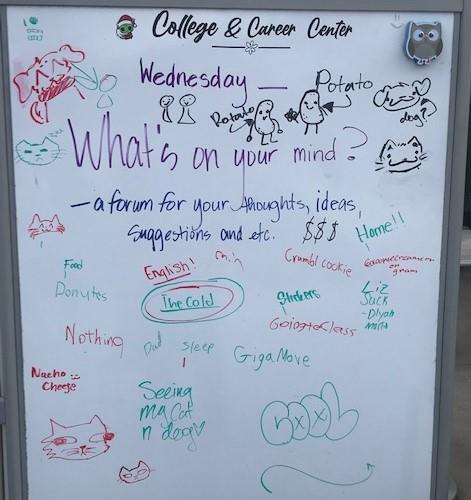 College & Career Center
Wednesday —
Potato
Potato
dog?
What's on your mind?
— a forum for your thoughts, ideas,
suggestions and etc.
$$$
Home!!
Food
English!
Crumbl cookie
Donutes
The Cold
Strikers
Liz
Suck
Going to Class
Nothing
Dad
sleep
GigaMove
Nacho
Cheese
Seeing
my cat
n dog
COOL